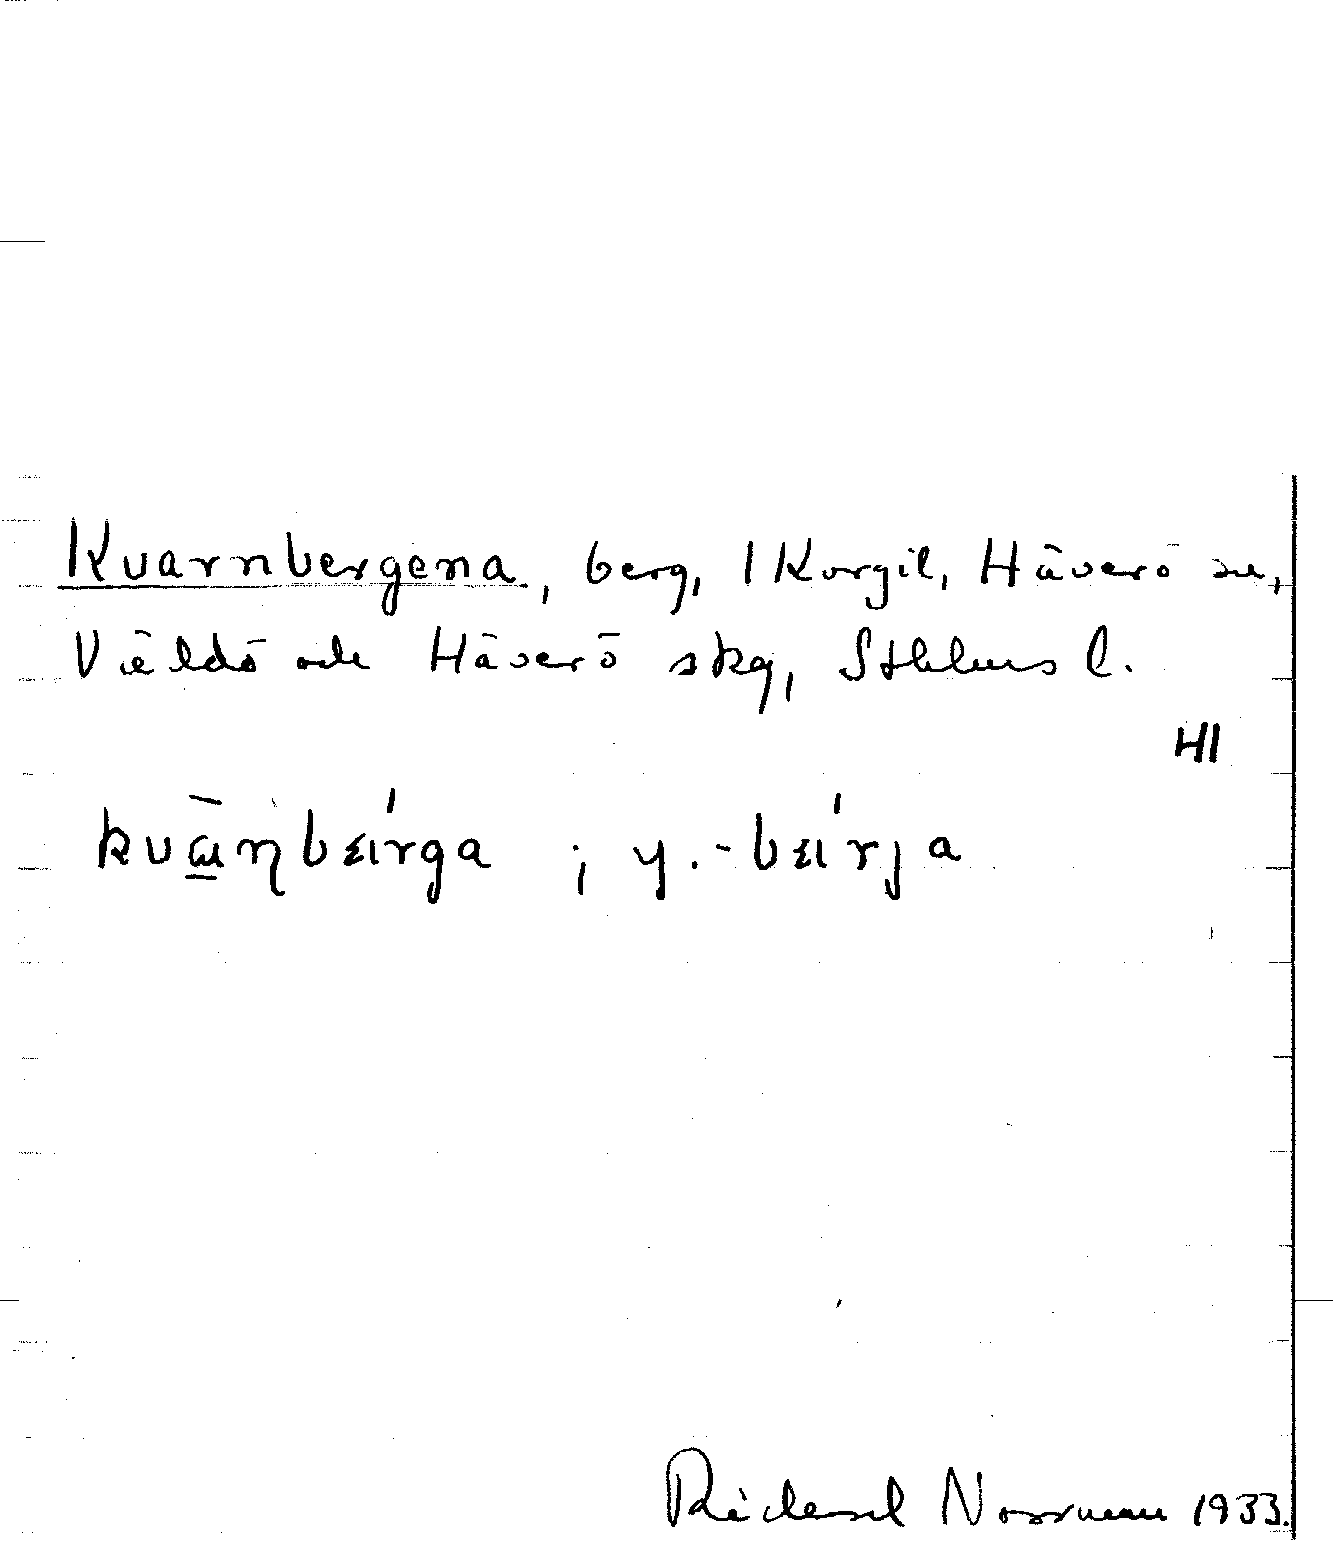 Kvarnbergena, berg, 1 Korgil, Häverö sn,
Väddö och Häverö skg, Sthlms l.
HI
kvāṇbɛrga ; y. -bɛrja
Rickard Norrman 1933.